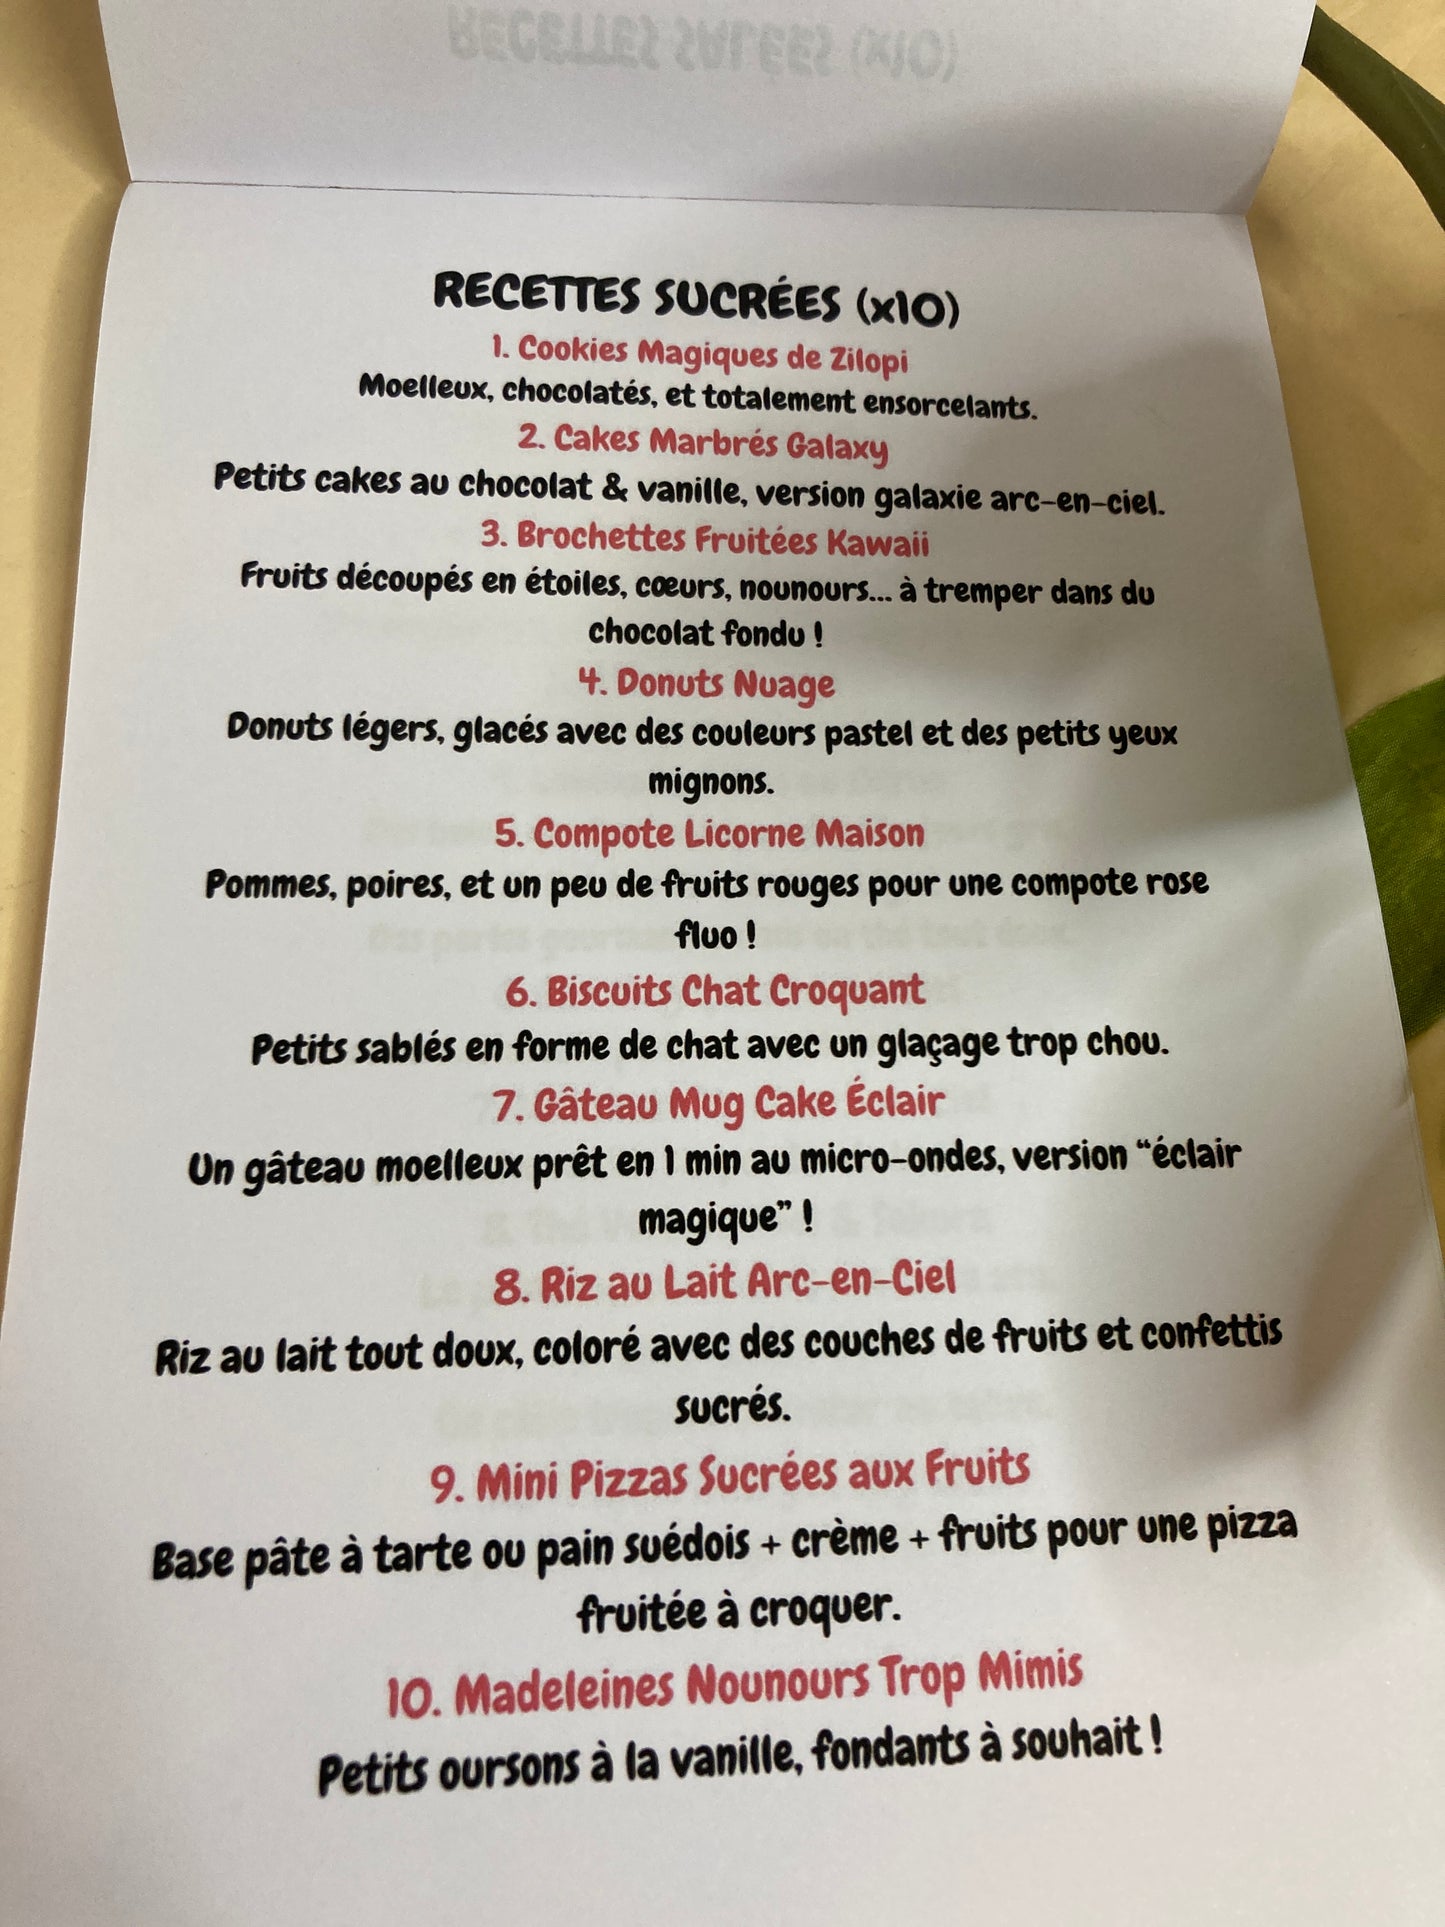 RECETTES SALÉES (x10)
RECETTES SUCRÉES (x10)
1. Cookies Magiques de Zilopi
Moelleux, chocolatés, et totalement ensorcelants.
2. Cakes Marbrés Galaxy
Petits cakes au chocolat & vanille, version galaxie arc-en-ciel.
3. Brochettes Fruitées Kawaii
Fruits découpés en étoiles, cœurs, nounours... à tremper dans du
chocolat fondu !
4. Donuts Nuage
Donuts légers, glacés avec des couleurs pastel et des petits yeux
mignons.
5. Compote Licorne Maison
Pommes, poires, et un peu de fruits rouges pour une compote rose
fluo !
6. Biscuits Chat Croquant
Petits sablés en forme de chat avec un glaçage trop chou.
7. Gâteau Mug Cake Éclair
Un gâteau moelleux prêt en 1 min au micro-ondes, version “éclair
magique” !
8. Riz au Lait Arc-en-Ciel
Riz au lait tout doux, coloré avec des couches de fruits et confettis
sucrés.
9. Mini Pizzas Sucrées aux Fruits
Base pâte à tarte ou pain suédois + crème + fruits pour une pizza
fruitée à croquer.
10. Madeleines Nounours Trop Mimis
Petits oursons à la vanille, fondants à souhait !